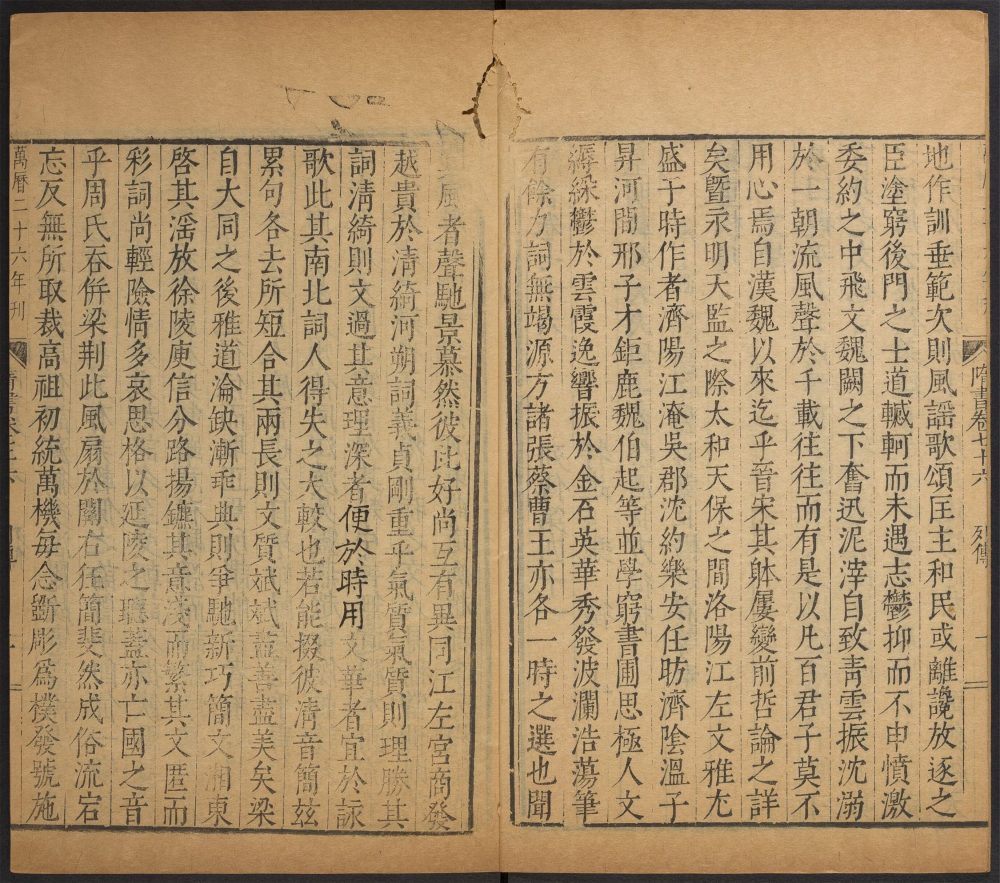 地作訓垂範次則風謠歌頌匡主和民或離讒放逐之
臣塗窮後門之士道轗軻而未遇志鬱抑而不申憤激
委約之中飛文魏闕之下奮迅泥滓自致青雲振沈溺
於一朝流風聲於千載往往而有是以凡百君子莫不
用心焉自漢魏以來迄乎晉宋其躰屢變前哲論之詳
矣曁永明天監之際太和天保之間洛陽江左文雅尤
盛于時作者濟陽江淹吳郡沈約樂安任昉濟陰溫子
昇河間邢子才鉅鹿魏伯起等並學窮書圃思極人文
縟綵鬱於雲霞逸響振於金石英華秀發波瀾浩蕩筆
有餘力詞無竭源方諸張蔡曹王亦各一時之選也聞
隋書卷七十六 列傳 二
其風者聲馳景慕然彼此好尚互有異同江左宮商發
越貴於清綺河朔詞義貞剛重乎氣質氣質則理勝其
詞清綺則文過其意理深者便於時用文華者宜於詠
歌此其南北詞人得失之大較也若能掇彼清音簡茲
累句各去所短合其兩長則文質斌斌盡善盡美矣梁
自大同之後雅道淪缺漸乖典則爭馳新巧簡文湘東
啓其淫放徐陵庾信分路揚鑣其意淺而繁其文匿而
彩詞尚輕險情多哀思格以延陵之聽蓋亦亡國之音
乎周氏吞併梁荆此風扇於關右狂簡斐然成俗流宕
忘反無所取裁高祖初統萬機每念斲彫爲樸發號施
萬曆二十六年刊